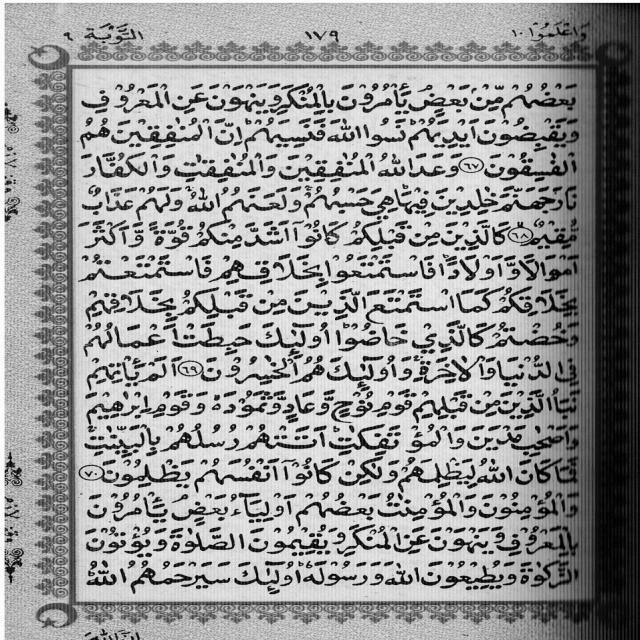 وَاعْلَمُوٓا ١٠ ١٧٩ التَّوْبَة ٩
بَعْضُهُمْ مِّنْ بَعْضٍ يَأْمُرُوْنَ بِالْمُنْكَرِ وَيَنْهَوْنَ عَنِ الْمَعْرُوْفِ
وَيَقْبِضُوْنَ اَيْدِيَهُمْ نَسُوا اللّٰهَ فَنَسِيَهُمْ اِنَّ الْمُنٰفِقِيْنَ هُمُ
الْفٰسِقُوْنَ ٦٧ وَعَدَ اللّٰهُ الْمُنٰفِقِيْنَ وَالْمُنٰفِقٰتِ وَالْكُفَّارَ
نَارَ جَهَنَّمَ خٰلِدِيْنَ فِيْهَا هِيَ حَسْبُهُمْ وَلَعَنَهُمُ اللّٰهُ وَلَهُمْ عَذَابٌ
مُّقِيْمٌ ٦٨ كَالَّذِيْنَ مِنْ قَبْلِكُمْ كَانُوْٓا اَشَدَّ مِنْكُمْ قُوَّةً وَّاَكْثَرَ
اَمْوَالًا وَّاَوْلَادًا فَاسْتَمْتَعُوْا بِخَلَاقِهِمْ فَاسْتَمْتَعْتُمْ
بِخَلَاقِكُمْ كَمَا اسْتَمْتَعَ الَّذِيْنَ مِنْ قَبْلِكُمْ بِخَلَاقِهِمْ
وَخُضْتُمْ كَالَّذِيْ خَاضُوْا اُولٰٓئِكَ حَبِطَتْ اَعْمَالُهُمْ
فِي الدُّنْيَا وَالْاٰخِرَةِ وَاُولٰٓئِكَ هُمُ الْخٰسِرُوْنَ ٦٩ اَلَمْ يَاْتِهِمْ
نَبَاُ الَّذِيْنَ مِنْ قَبْلِهِمْ قَوْمِ نُوْحٍ وَّعَادٍ وَّثَمُوْدَ وَقَوْمِ اِبْرٰهِيْمَ
وَاَصْحٰبِ مَدْيَنَ وَالْمُؤْتَفِكٰتِ اَتَتْهُمْ رُسُلُهُمْ بِالْبَيِّنٰتِ
فَمَا كَانَ اللّٰهُ لِيَظْلِمَهُمْ وَلٰكِنْ كَانُوْٓا اَنْفُسَهُمْ يَظْلِمُوْنَ ٧٠
وَالْمُؤْمِنُوْنَ وَالْمُؤْمِنٰتُ بَعْضُهُمْ اَوْلِيَآءُ بَعْضٍ يَّأْمُرُوْنَ
بِالْمَعْرُوْفِ وَيَنْهَوْنَ عَنِ الْمُنْكَرِ وَيُقِيْمُوْنَ الصَّلٰوةَ وَيُؤْتُوْنَ
الزَّكٰوةَ وَيُطِيْعُوْنَ اللّٰهَ وَرَسُوْلَهٗ اُولٰٓئِكَ سَيَرْحَمُهُمُ اللّٰهُ